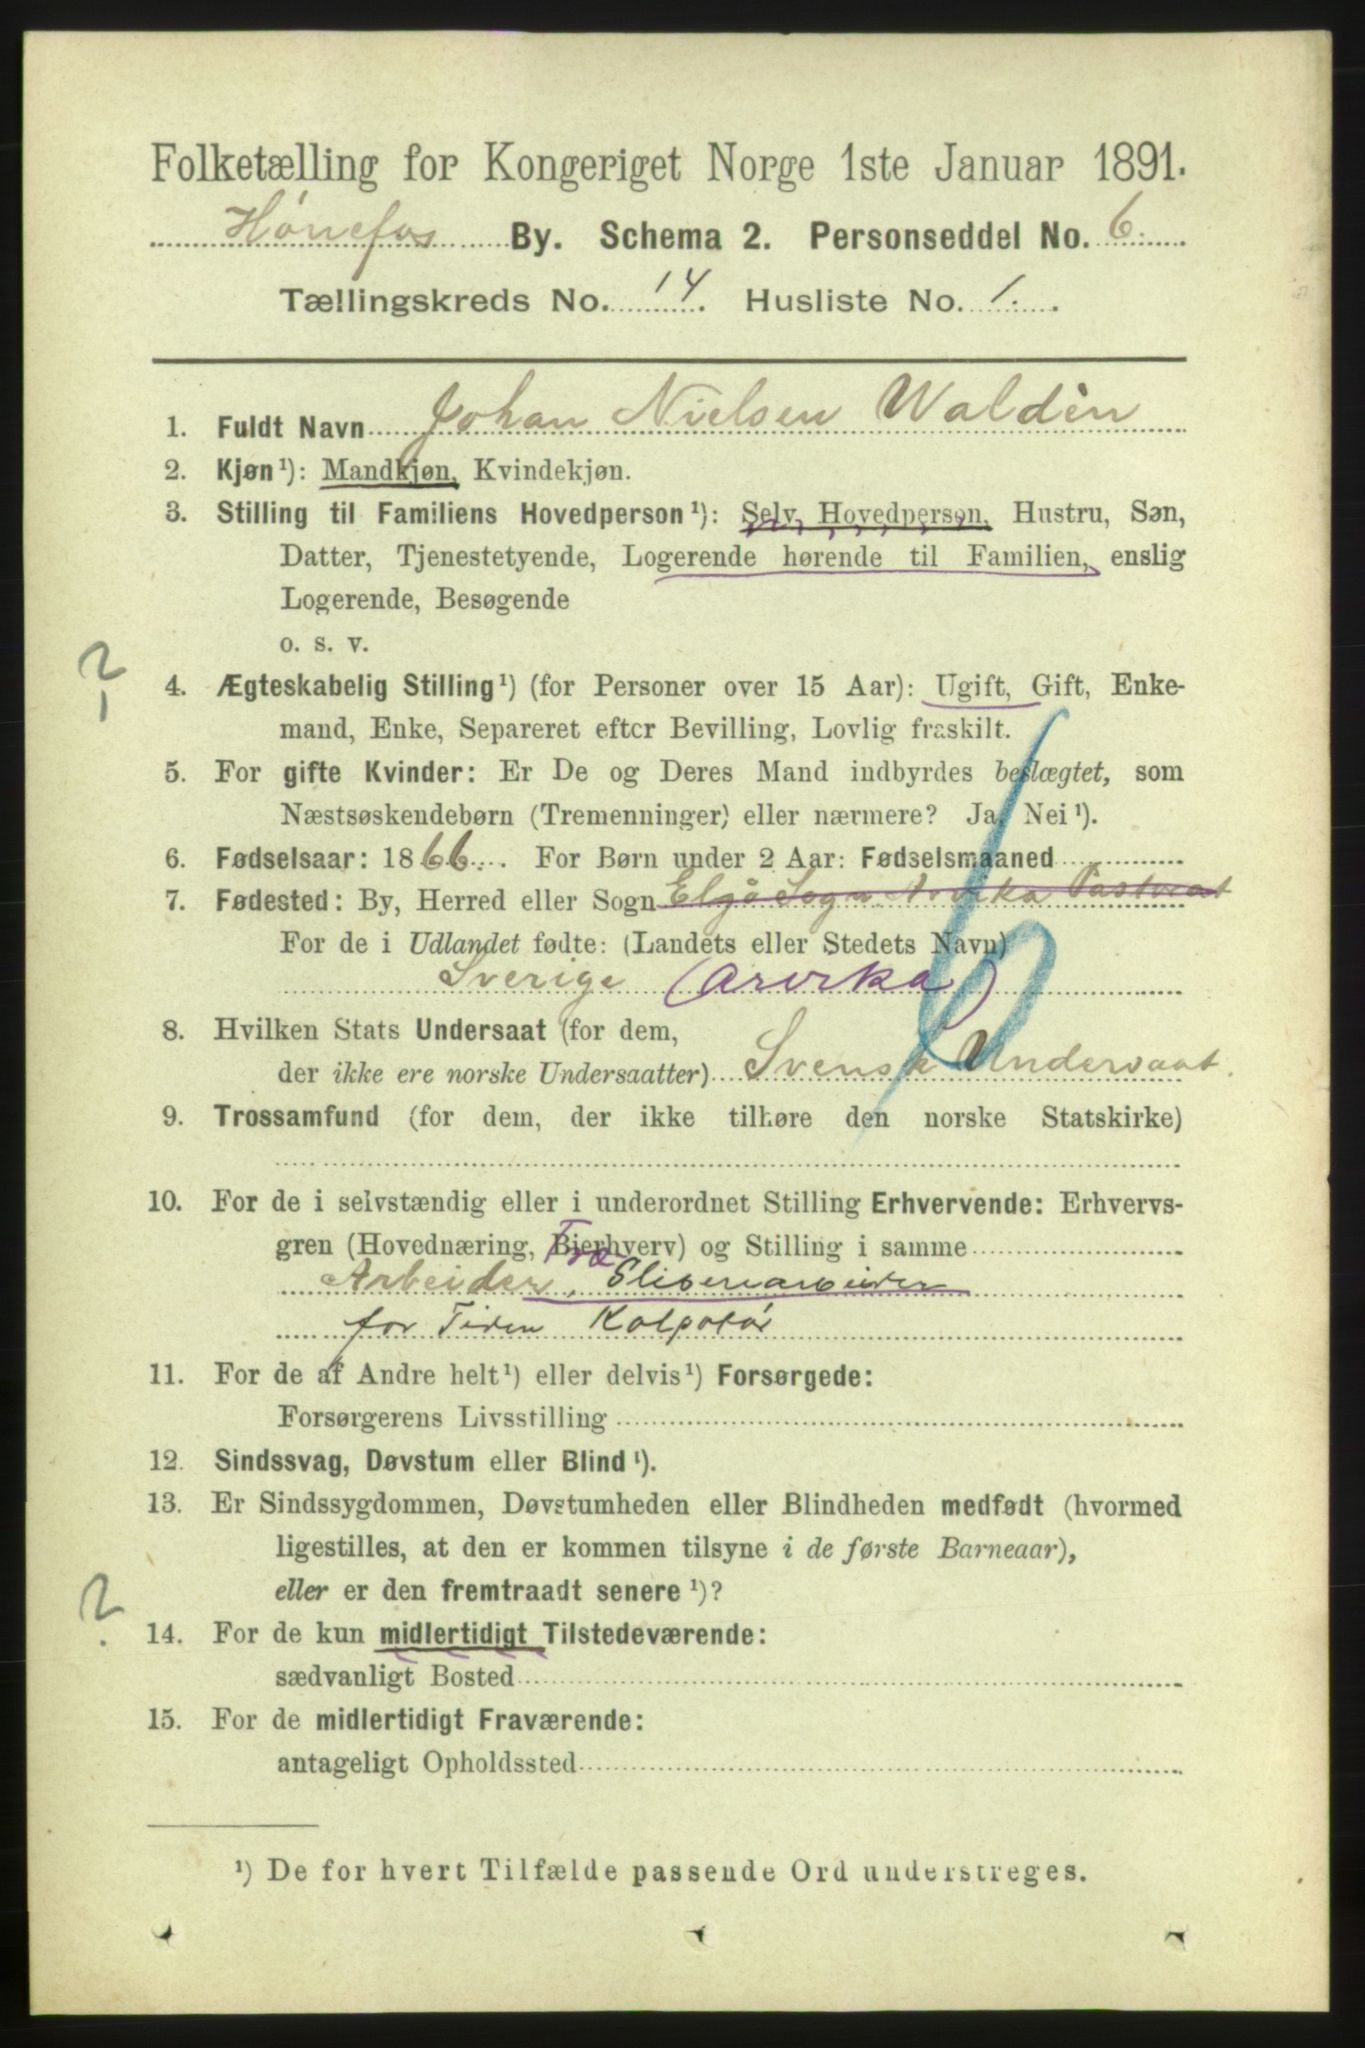 Folketælling for Kongeriget Norge 1ste Januar 1891.
Hönefos By. Schema 2. Personseddel No. 6.
Tællingskreds No. 14. Husliste No. 1.
1. Fuldt Navn Johan Nielsen Waldèn
2. Kjøn¹): Mandkjøn, Kvindekjøn.
3. Stilling til Familiens Hovedperson¹): Selv, Hovedperson, Hustru, Søn,
Datter, Tjenestetyende, Logerende hørende til Familien, enslig
Logerende, Besøgende
o. s. v.
?
4. Ægteskabelig Stilling¹) (for Personer over 15 Aar): Ugift, Gift, Enke-
mand, Enke, Separeret efter Bevilling, Lovlig fraskilt.
5. For gifte Kvinder: Er De og Deres Mand indbyrdes beslægtet, som
Næstsøskendebørn (Tremenninger) eller nærmere? Ja, Nei¹).
6. Fødselsaar: 1866. For Børn under 2 Aar: Fødselsmaaned
7. Fødested: By, Herred eller Sogn Elgå Sogn Arvika Pastorat
For de i Udlandet fødte: (Landets eller Stedets Navn)
Sverige (Arvika)
8. Hvilken Stats Undersaat (for dem,
der ikke ere norske Undersaatter) Svensk Undersaat.
9. Trossamfund (for dem, der ikke tilhøre den norske Statskirke)
10. For de i selvstændig eller i underordnet Stilling Erhvervende: Erhvervs-
gren (Hovednæring, Bierhverv) og Stilling i samme
Arbeider, Træ Sliberiarbeider
for Tiden
11. For de af Andre helt¹) eller delvis¹) Forsørgede:
Forsørgerens Livsstilling
12. Sindssvag, Døvstum eller Blind¹).
13. Er Sindssygdommen, Døvstumheden eller Blindheden medfødt (hvormed
ligestilles, at den er kommen tilsyne i de første Barneaar),
eller er den fremtraadt senere¹)?
?
14. For de kun midlertidigt Tilstedeværende:
sædvanligt Bosted
15. For de midlertidigt Fraværende:
antageligt Opholdssted
¹) De for hvert Tilfælde passende Ord understreges.